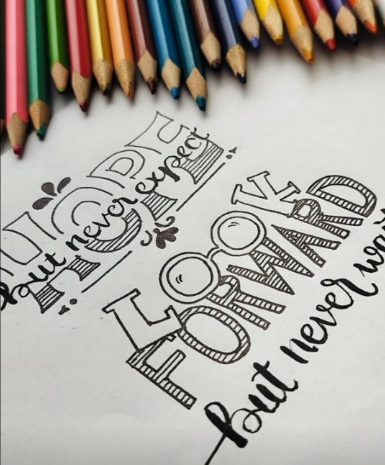 HOPE
but never expect
LOOK
FORWARD
but never